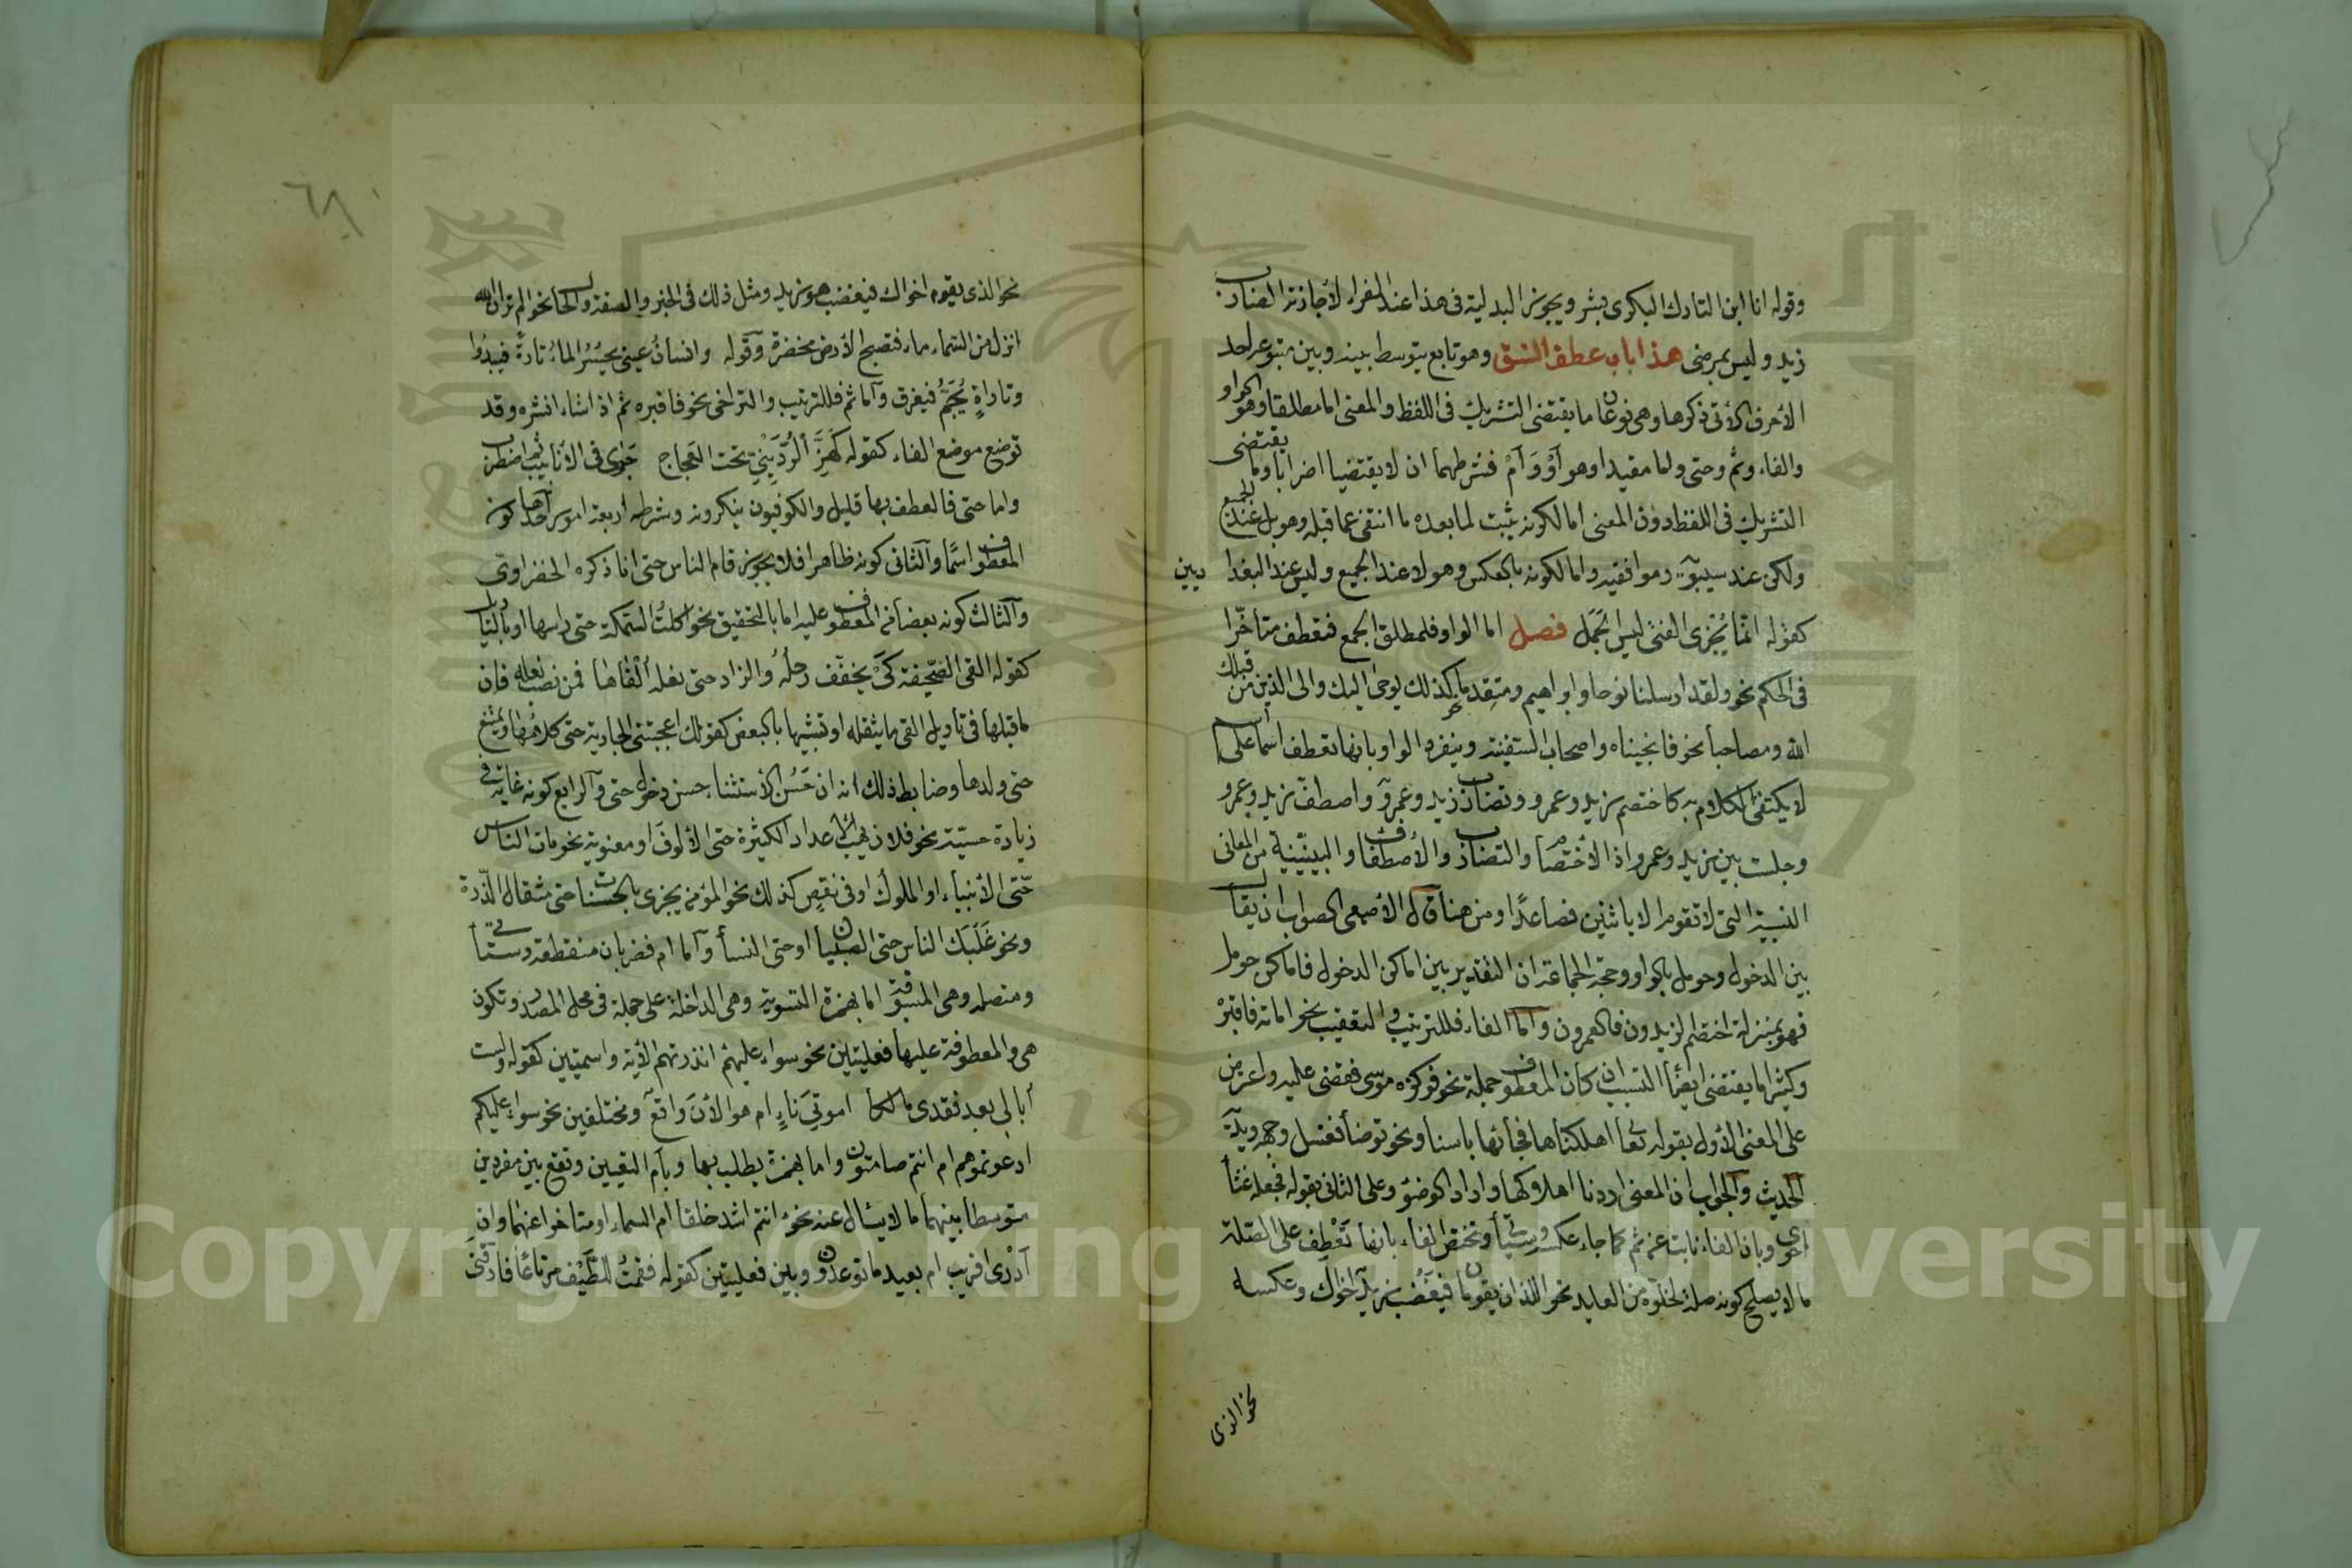 وقوله انا ابن التارك البكرى بشر ويجوز البدلية فى هذا عند الفراء لاجازته الضارب
زيد وليس بمرضى هذا باب عطف النسق وهو تابع يتوسط بينه وبين متبوعه احد
الاحرف الاتى ذكرها وهى نوعان ما يقتضى التشريك فى اللفظ والمعنى اما مطلقا وهو الواو
والفاء وثم وحتى واما مقيدا وهو أَوْ وَأَمْ فشرطهما ان لا يقتضيا اضرابا وما يقتضى
التشريك فى اللفظ دون المعنى اما لكونه يثبت لما بعده ما انتفى عما قبله وهو بل عند الجميع
ولكن عند سيبويه وموافقيه واما لكونه بالعكس وهو لا عند الجميع وليس عند البغداديين
كقوله انما يُجْزى الفتى ليس الجَمَل فصل اما الواو فلمطلق الجمع فتعطف متاخّرا
فى الحكم نحو ولقد ارسلنا نوحا وابراهيم ومتقدما نحو كذلك يوحى اليك والى الذين من قبلك
الله ومصاحبا نحو فانجيناه واصحاب السفينة وينفرد الواو بانها تعطف اسما على اسم
لا يكتفى الكلام به كاختصم زيد وعمرو وتضارب زيد وعمرو واصطفّ زيد وعمرو
وجلست بين زيد وعمرو اذ الاختصام والتضارب والاصطفاف والبينيّة من المعانى
النسبية التى لا تقوم الا باثنين فصاعدًا ومن هنا قال الاصمعى الصواب ان يقال
بين الدخول وحومل بالواو وحجّة الجماعة ان التقدير بين اماكن الدخول فاماكن حومل
فهو بمنزلة اختصم الزيدون فالعمرون واما الفاء فللترتيب والتعقيب نحو اماته فاقبره
وكثيرا ما يقتضى ايضًا التسبب ان كان المعطوف جملة نحو فوكزه موسى فقضى عليه واعترض
على المعنى الاول بقوله تعا اهلكناها فجائها باسنا ونحو توضأ فغسل وجهه ويديه
الحديث والجواب ان المعنى اردنا اهلاكها واراد الوضؤ وعلى الثانى بقوله فجعله غثأ
احوى وبان الفاء نابت عن ثم كما جاء عكسه وسيأتى وتختص الفاء بانها تَعْطِف على الصلة
ما لا يصلح كونه صلة لخلوّه من العايد نحو اللذان يقومان فيغضب زيد اخواك وعكسه
نحو الذى
٦٨
نحو الذى يقوم اخواك فيغضب هو زيد ومثل ذلك فى الخبر والصفة والحال نحو الم تر ان الله
انزل من السماء ماء فتصبح الارض مخضرة وقوله وانسانُ عينى يحسُرُ الماءُ تارةً فيبدُوا
وتاراةٍ يُجَمُّ فيغرق وآما ثم فللترتيب والتراخى نحو فاقبره ثم اذا شاء انشره وقد
توضع موضع الفاء كقوله كَهَزِّ الرُّدَيْنِيِّ تحت العجاج جَرى فى الانابيب ثم اضطرب
واما حتى فالعطف بها قليل والكوفيون ينكرونه وشرطه اربعة امور احدها كون
المعطوف اسمًا والثانى كونه ظاهرا فلا يجوز قام الناس حتى انا ذكره الخضراوى
والثالث كونه بعضا من المعطوف عليه اما بالتحقيق نحو اكلتُ السّمكة حتى راسها او بالتاويل
كقوله القى الصّحيفة كَىْ يخفّف رحلهُ والزاد حتى نعله أَلْقَاها فمن نصب نعله فان
ما قبلها فى تاويل القى ما يثقله او تشبيها بالبعض كقولك اعجبتنى الجارية حتى كلامُها ويمتنع
حتى ولدها وضابط ذلك انه ان حَسُن الاستثناء حسن دخول حتى وآلرابع كونه غاية فى
زيادة حسيّة نحو فلان يهب الاعداد الكثيرة حتى الألوفَ او معنوية نحو مات الناس
حتّى الأنبياء او الملوك او فى نقصٍ كذلك نحو المؤمن يجزى بالحسنات حتى مثقال الذّرة
ونحو غَلَبَكَ الناس حتى الصبيان او حتى النسأ وآما ام فضربان منقطعة وستأتى
ومتصله وهى المسبوقة اما بهمزة التسوية وهى الداخلة على جملة فى محل المصدر وتكون
هى والمعطوفة عليها فعليتين نحو سواء عليهم انذرتهم الأية واسميتين كقوله ولست
أبالى بعد فقدى مالكا اموتى نَاءٍ ام هو الأنَ واقع ومختلفين نحو سواء عليكم
ادعوتموهم ام انتم صامتون واما بهمزة يطلب بها وبام التعيين وتقع بين مفردين
متوسطا بينهما ما لا يسال عنه نحو انتم اشد خلقا ام السماء او متاخرا عنهما وان
أَدْرى اقريب ام بعيد ما توعدون وبين فعليتين كقوله فقمتُ للطَّيْف مرتاعًا فارقنى